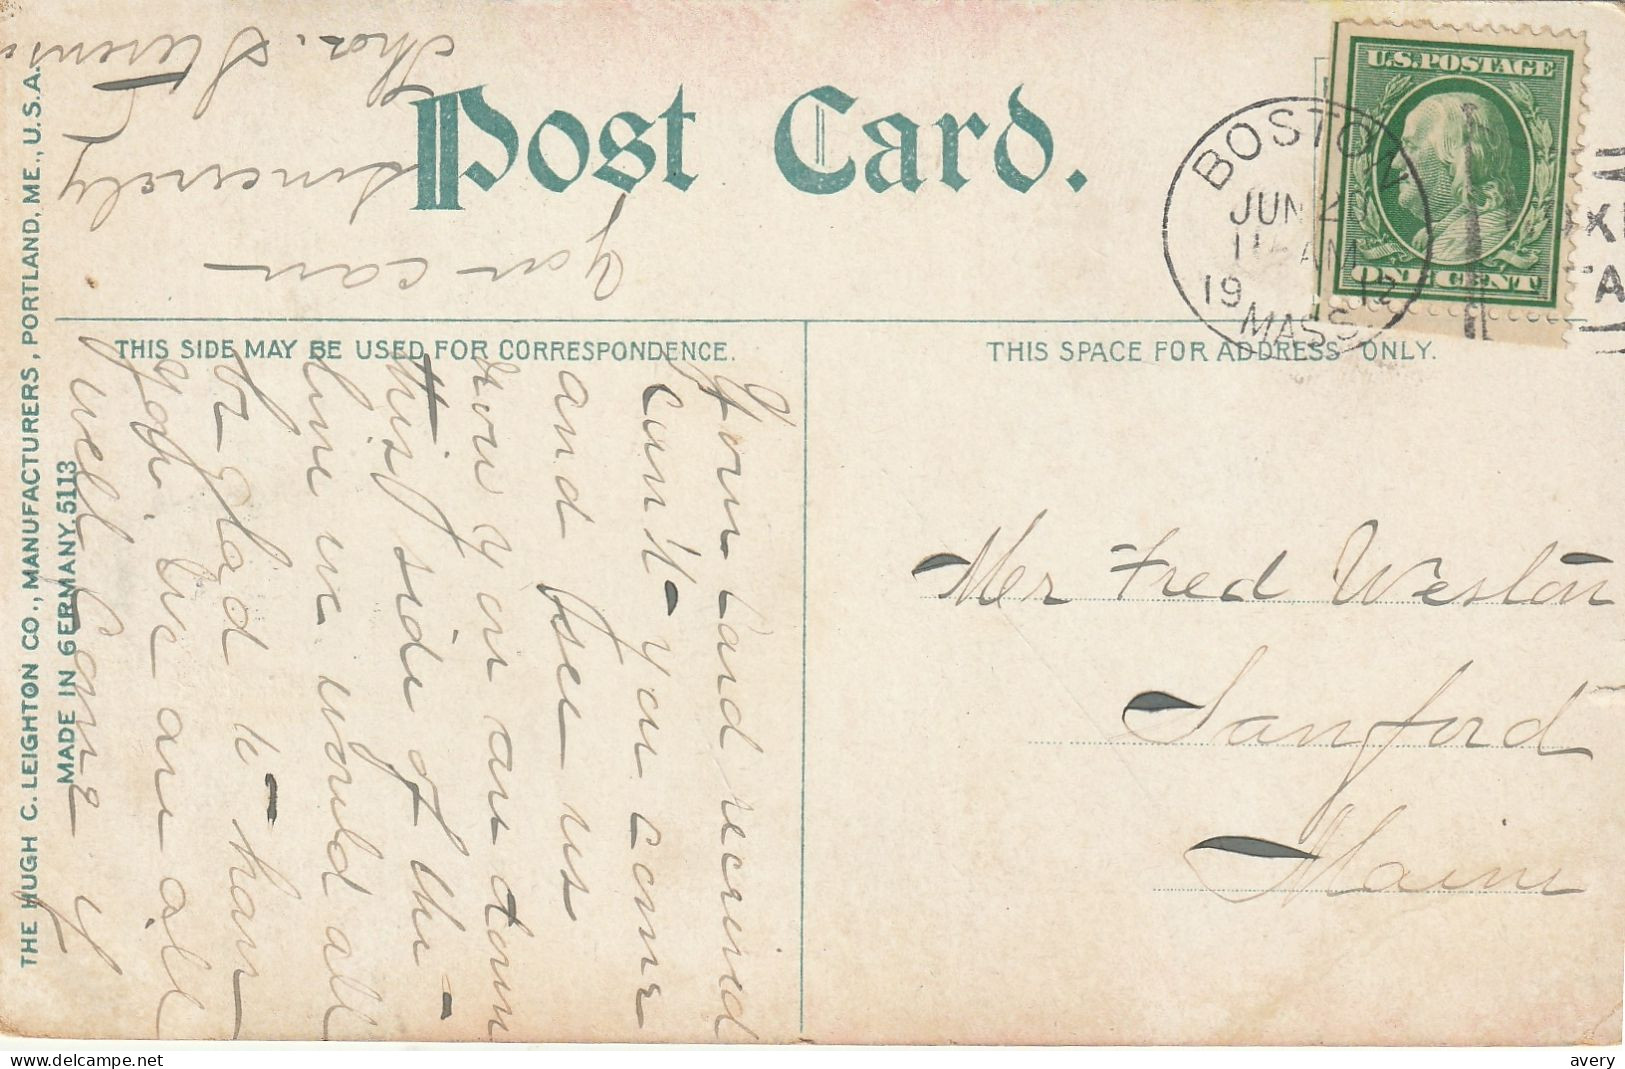 Post Card.
U.S. POSTAGE
ONE CENT
BOSTON
JUN 2
11 AM
19 12
MASS
THIS SIDE MAY BE USED FOR CORRESPONDENCE.
THIS SPACE FOR ADDRESS ONLY.
THE HUGH C. LEIGHTON CO., MANUFACTURERS, PORTLAND, ME., U.S.A.
MADE IN GERMANY. 5113
Your Card received
Can't you come
and see us
now you are down
this side of the
line we would all
be glad to have
you. We are all
well Come if
you can
Sincerely
Thos.
Mr Fred Weston
Sanford
Maine
avery
www.delcampe.net